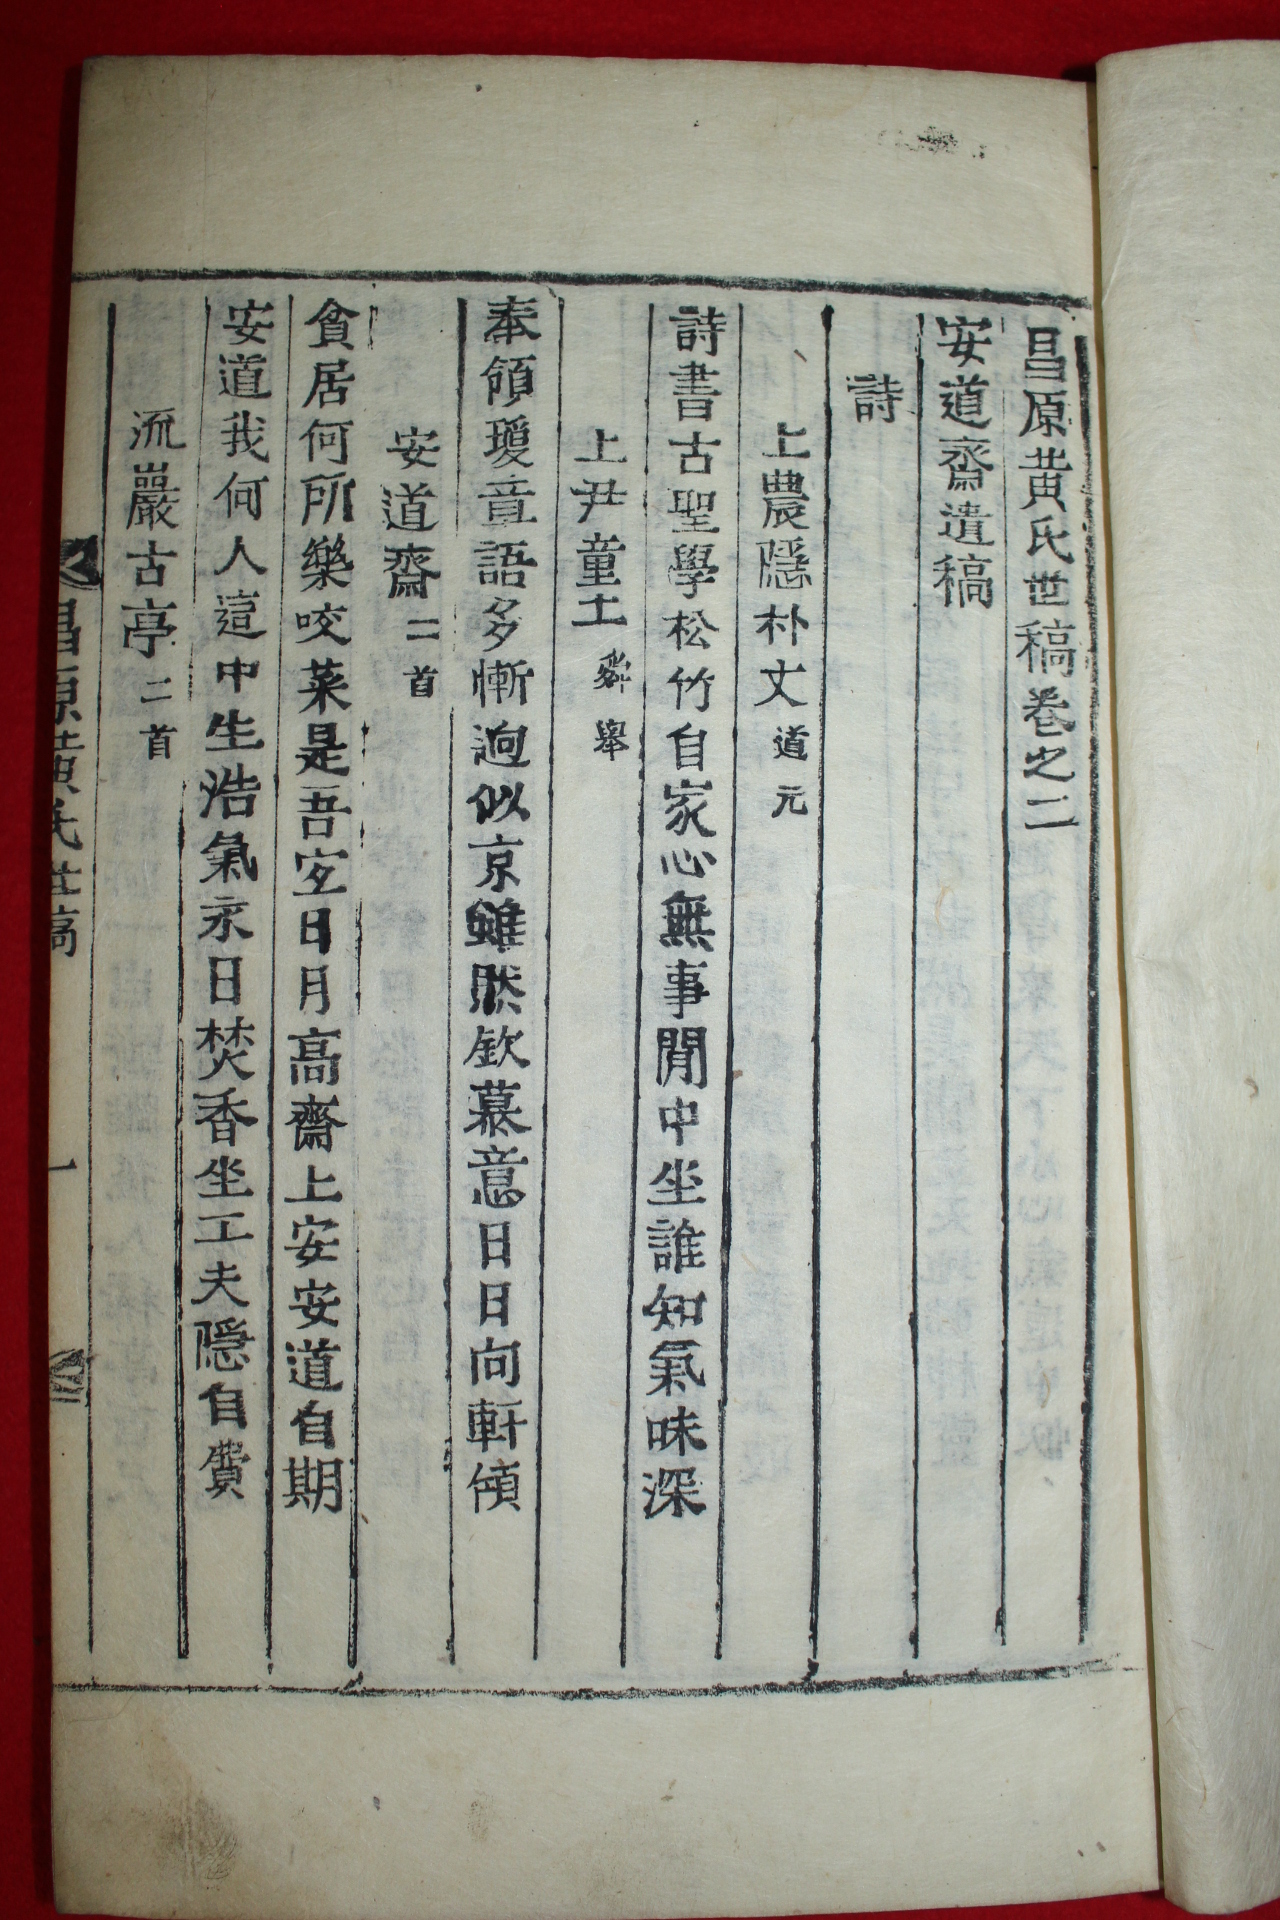 昌原黃氏世稿卷之二
安道齋遺稿
詩
上農隱朴丈道元
詩書古聖學松竹自家心無事閒中坐誰知氣味深
上尹童土舜擧
奉領瓊章語多慚逈似京雖然欽慕意日日向軒傾
安道齋二首
貧居何所樂咬菜是吾宜日月高齋上安安道自期
安道我何人這中生浩氣永日焚香坐工夫隱自費
流巖古亭二首
昌原黃氏世稿
一